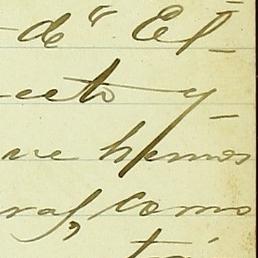 de" El-
ecto y
ve hemos
ras, como